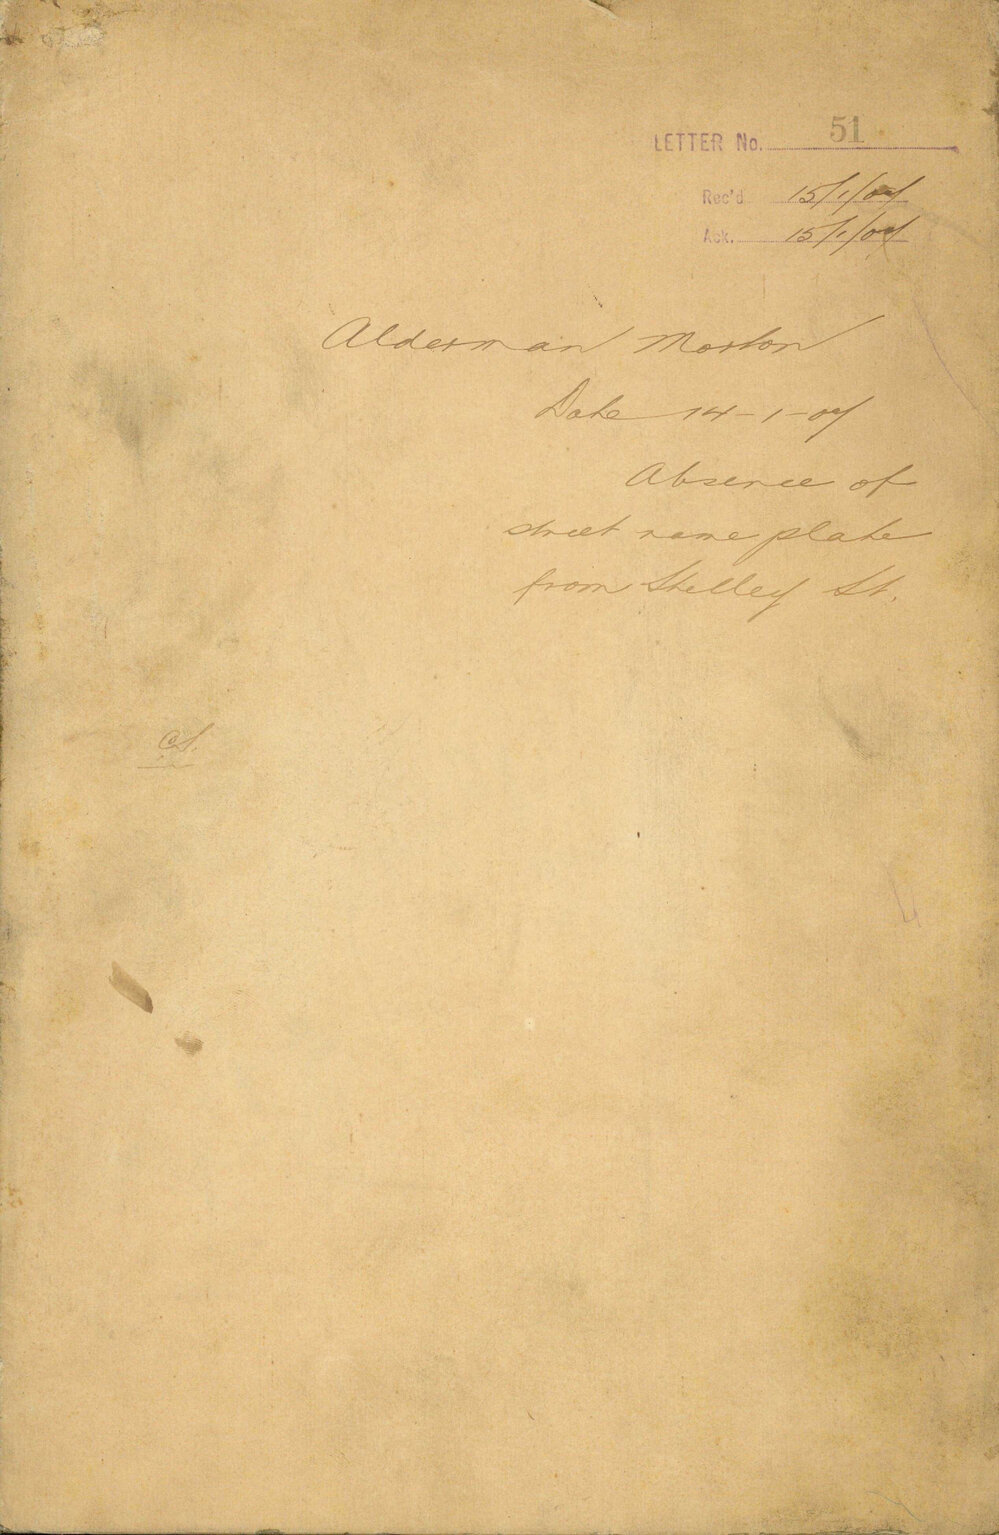 LETTER No. 51
Rec'd 15/1/07
Ack. 15/1/07
Alderman Morton
Date 14-1-07
Absence of
street name plate
from Shelley St.
CS.